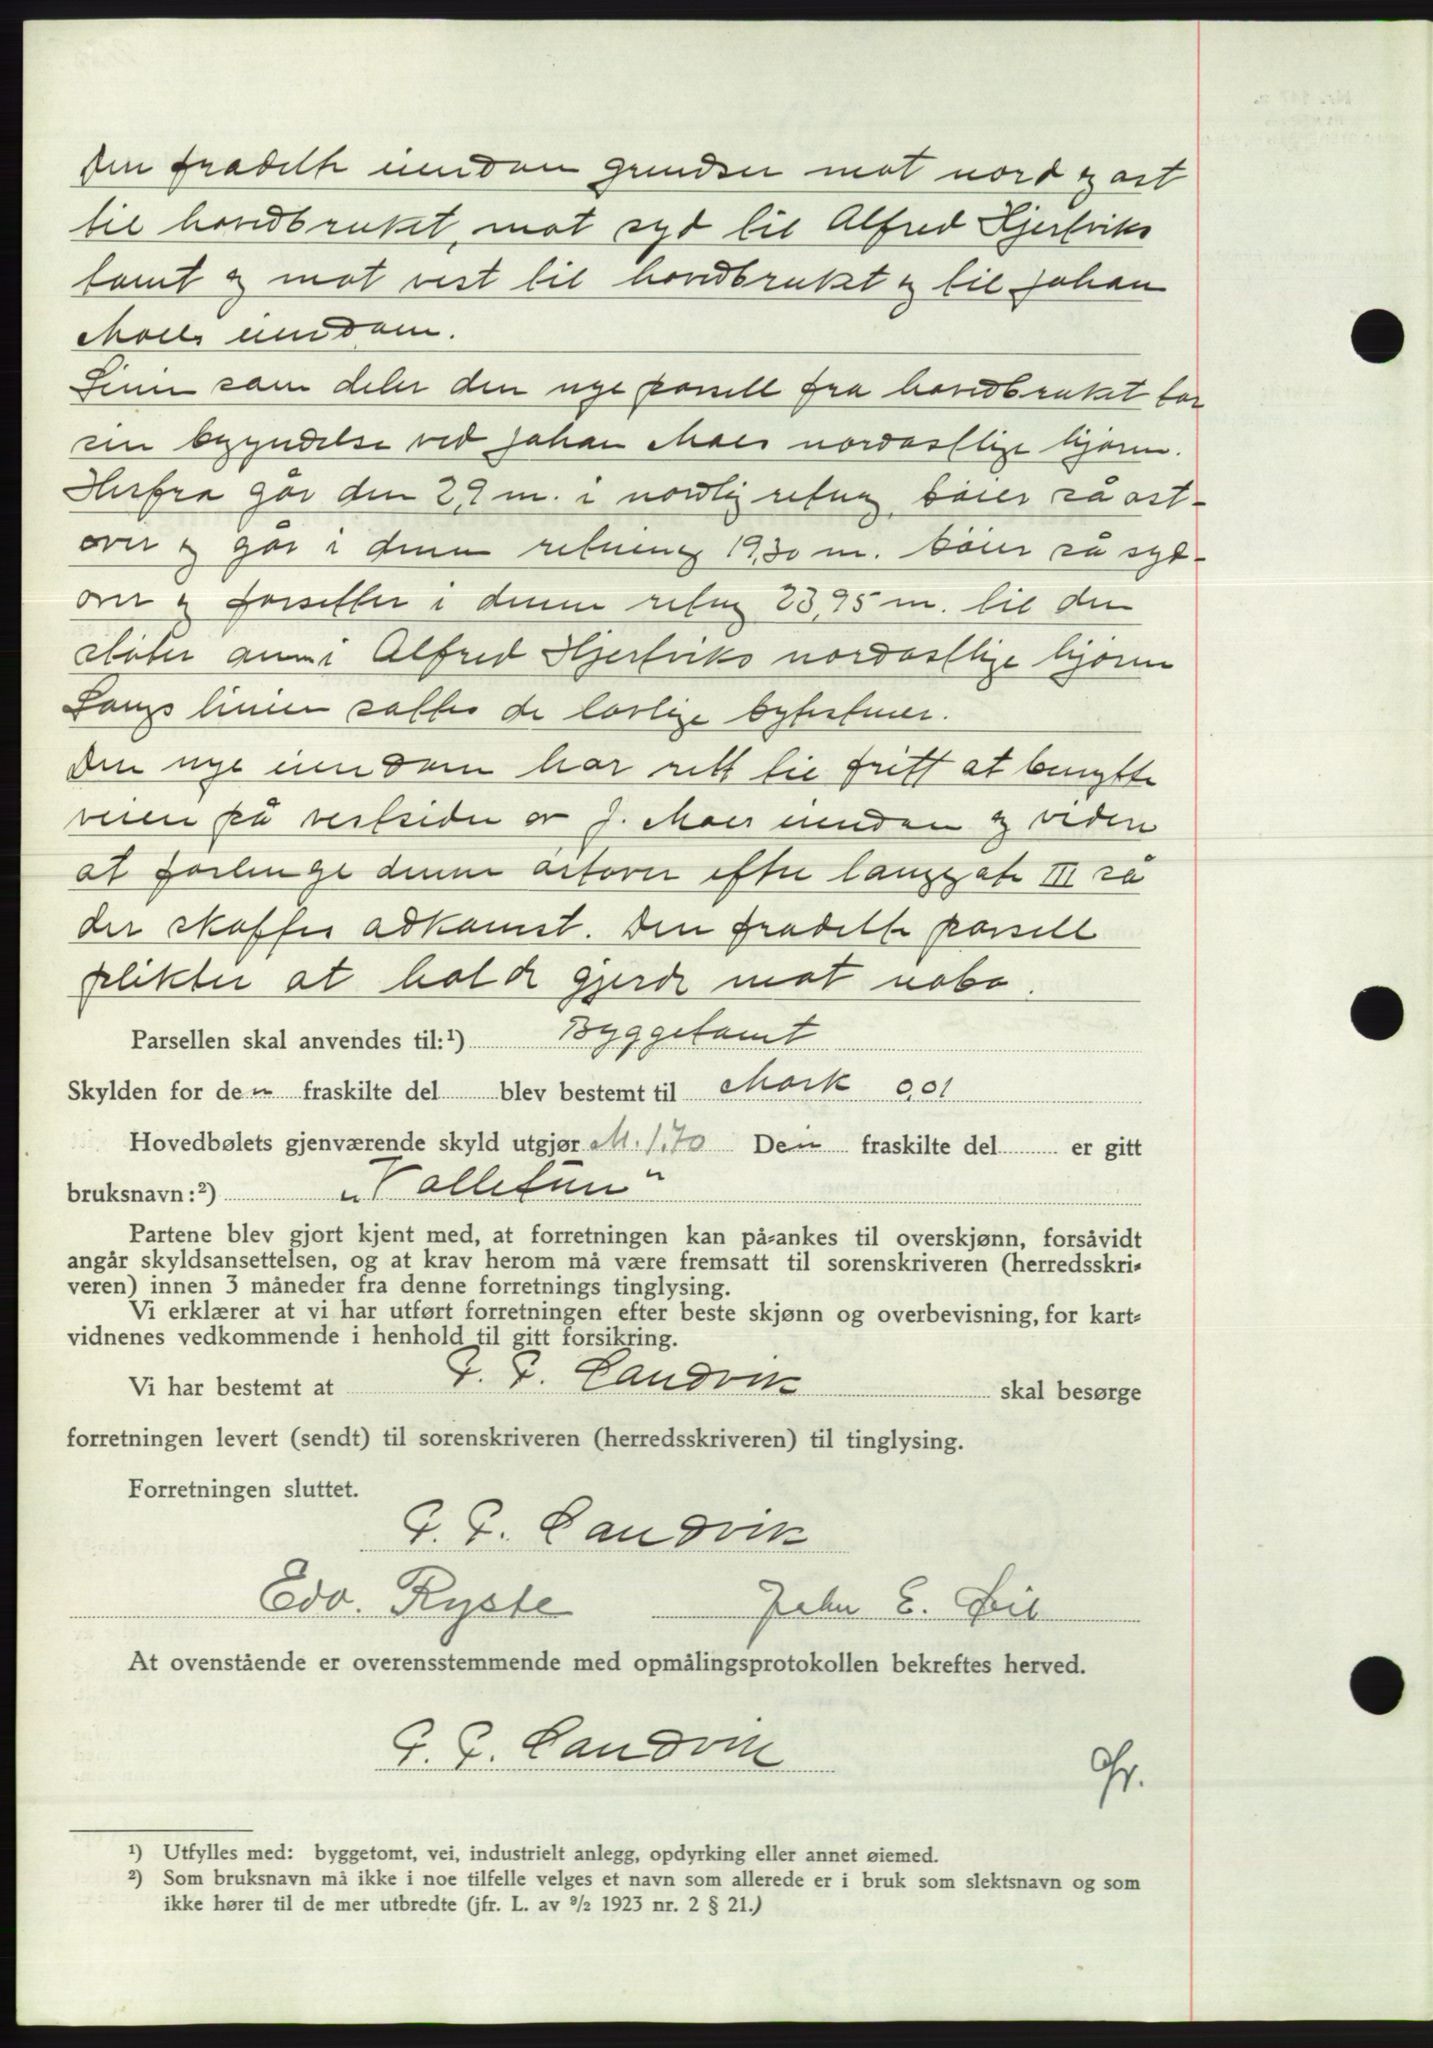 Den fradelte eiendom grendser mot nord og øst
til hovedbruket, mot syd til Alfred Hjertviks
tomt og mot vest til hovedbruket og til Johan
Moes eiendom.
Linien som deler den nye parsell fra hovedbruket tar
sin begyndelse ved Johan Moes nordøstlige hjørne.
Herfra går den 2,9 m. i nordlig retning, bøier så øst-
over og går i denne retning 19,30 m. bøier så syd-
over og forsetter i denne retning 23,95 m. til den
støter ann i Alfred Hjertviks nordøstlige hjørne
Langs linien sattes de lovlige bytestener.
Den nye eiendom har rett til fritt at benytte
veien på vestsiden av J. Moes eiendom og videre
at forlenge denne østover efter langgate III så
der skaffes adkomst. Den fradelte parsell
plikter at holde gjerde mot nabo.
Parsellen skal anvendes til:¹) Byggetomt
Skylden for den fraskilte del blev bestemt til Mark 0,01
Hovedbølets gjenværende skyld utgjør M. 1.70 Den fraskilte del er gitt
bruksnavn:²) „Valletun“
Partene blev gjort kjent med, at forretningen kan på-ankes til overskjønn, forsåvidt
angår skyldsansettelsen, og at krav herom må være fremsatt til sorenskriveren (herredsskri-
veren) innen 3 måneder fra denne forretnings tinglysing.
Vi erklærer at vi har utført forretningen efter beste skjønn og overbevisning, for kart-
vidnenes vedkommende i henhold til gitt forsikring.
Vi har bestemt at P. P. Sandvik skal besørge
forretningen levert (sendt) til sorenskriveren (herredsskriveren) til tinglysing.
Forretningen sluttet.
P. P. Sandvik
Edv. Ryste John E. Løil
At ovenstående er overensstemmende med opmålingsprotokollen bekreftes herved.
P. P. Sandvik
¹) Utfylles med: byggetomt, vei, industrielt anlegg, opdyrking eller annet øiemed.
²) Som bruksnavn må ikke i noe tilfelle velges et navn som allerede er i bruk som slektsnavn og som
ikke hører til de mer utbredte (jfr. L. av 9/2 1923 nr. 2 § 21.)